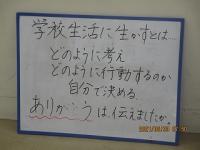 学校生活に生かすとは…
どのように考え
どのように行動するのか
自分で決める。
ありが…うは、伝えましたか。